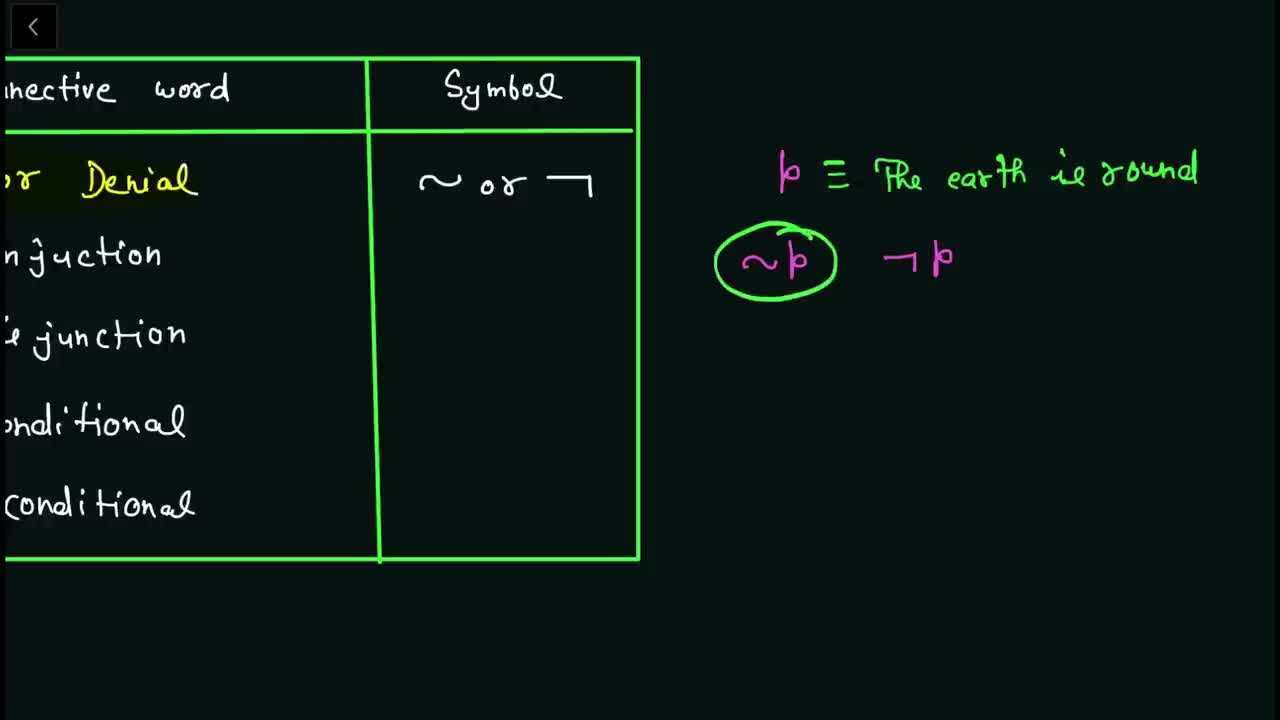 nnective word Symbol
or Denial ~ or ¬
njuction
is junction
onditional
conditional
p ≡ The earth is round
~p ¬p